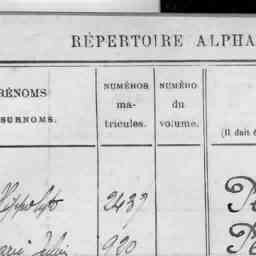 RÉPERTOIRE ALPHA
RÉNOMS
SURNOMS.
NUMÉROS
ma-
tricules.
NUMÉRO
du
volume.
(Il doit é
Hippolyte 2437
920